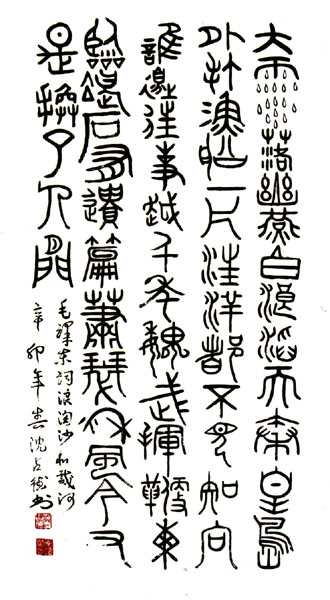 大雨落幽燕白浪滔天秦皇島
外打漁船一片汪洋都不見知向
誰邊往事越千年魏武揮鞭東
臨碣石有遺篇蕭瑟秋風今又
是換了人間
毛澤東詞浪淘沙北戴河
辛卯年沈书